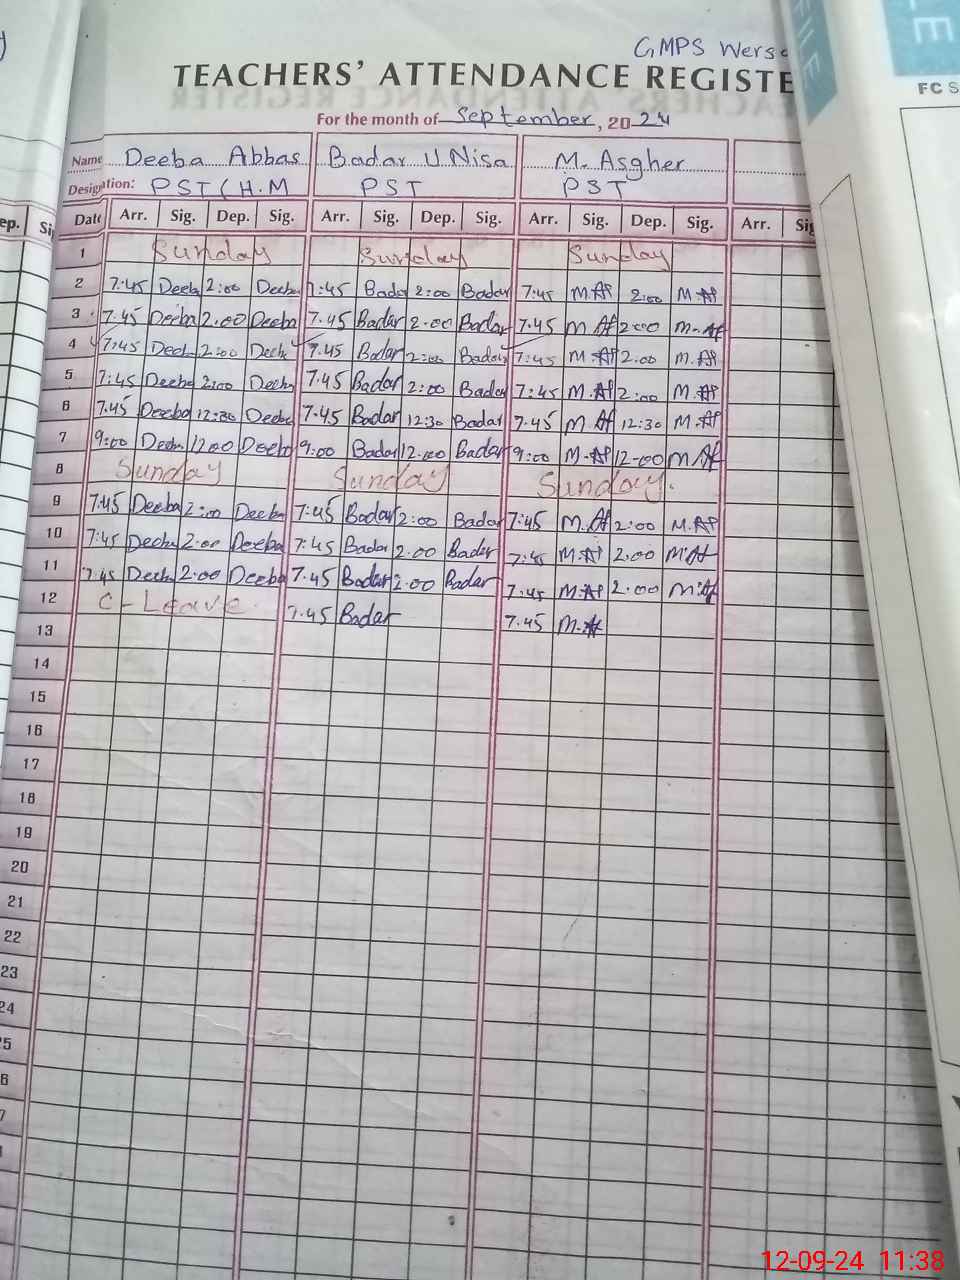 GMPS
TEACHERS' ATTENDANCE REGISTE
For the month of September, 2024
Name Deeba Abbas Badar U Nisa M. Asgher
Designation: PST (H.M PST PST
Date Arr. Sig. Dep. Sig. Arr. Sig. Dep. Sig. Arr. Sig. Dep. Sig. Arr. Sig
1 Sunday Sunday Sunday
2 7:45 Deeba 2:00 Deeba 7:45 Badar 2:00 Badar 7:45 2:00
3 7.45 Deeba 2.00 Deeba 7.45 Badar 2.00 Badar 7.45 2:00
4 7:45 Deeba 2:00 Deeba 7.45 Badar 2:00 Badar 7:45 2.00
5 7:45 Deeba 2:00 Deeba 7.45 Badar 2:00 Badar 7:45 2:00
6 7.45 Deeba 12:30 Deeba 7.45 Badar 12:30 Badar 7.45 12:30
7 9:00 Deeba 12:00 Deeba 9:00 Badar 12:00 Badar 9:00 12-00
8 Sunday Sunday Sunday.
9 7:45 Deeba 2:00 Deeba 7:45 Badar 2:00 Badar 7:45 2:00
10 7:45 Deeba 2:00 Deeba 7:45 Badar 2.00 Badar 7:45 2.00
11 7.45 Deeba 2:00 Deeba 7.45 Badar 2.00 Badar 7:45 2.00
12 C-Leave. 7.45 Badar 7.45
13
14
15
16
17
18
19
20
21
22
23
24
5
6
7
FILE
FC S
12-09-24 11:38